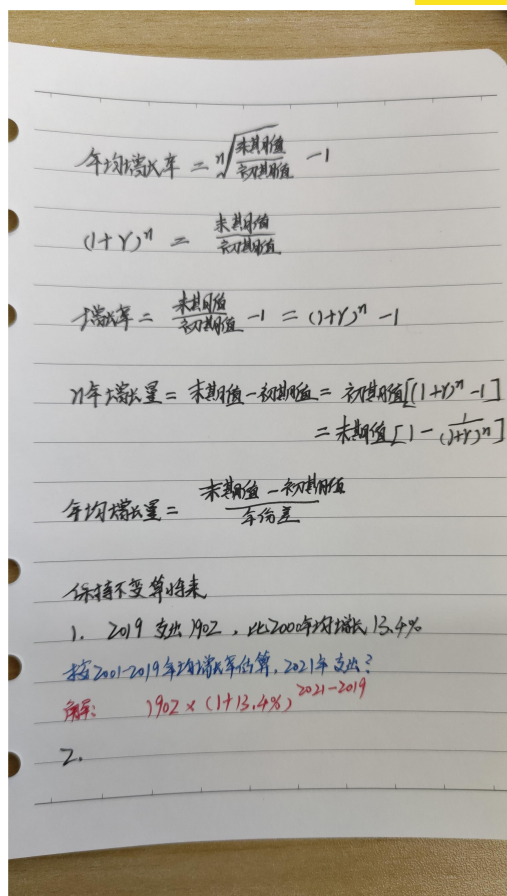 年均增长率 = ⁿ√(末期值/初期值) - 1
(1+r)ⁿ = 末期值/初期值
增长率 = 末期值/初期值 - 1 = (1+r)ⁿ - 1
n年增长量 = 末期值 - 初期值 = 初期值[(1+r)ⁿ - 1]
= 末期值[1 - 1/(1+r)ⁿ]
年均增长量 = 末期值 - 初期值/年份差
保持不变算将来
1. 2019 支出 1902，比2000年均增长 13.4%
按2001-2019年均增长率估算，2021年支出？
解： 1902 × (1+13.4%)²⁰²¹⁻²⁰¹⁹
2.